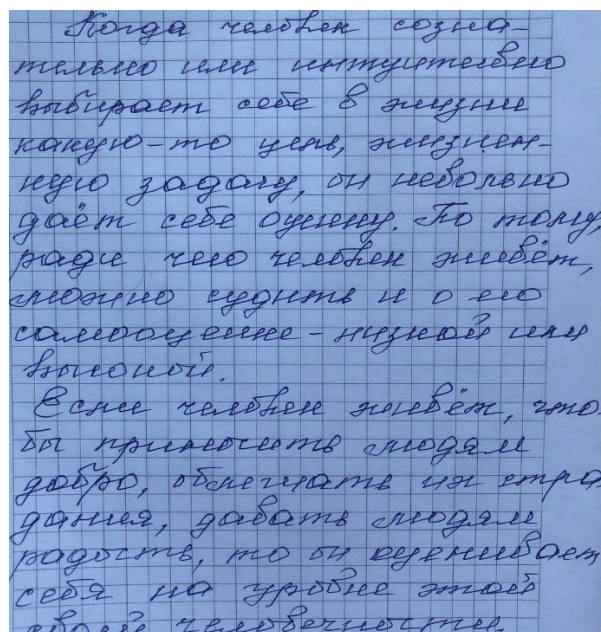 Когда человек созна-
тельно или интуитивно
выбирает себе в жизни
какую-то цель, жизнен-
ную задачу, он невольно
даёт себе оценку. По тому,
ради чего человек живёт,
можно судить и о его
самооценке - низкой или
высокой.
Если человек живёт, что
бы приносить людям
добро, облегчать их стра
дания, давать людям
радость, то он оценивает
себя на уровне этой
своей человечности